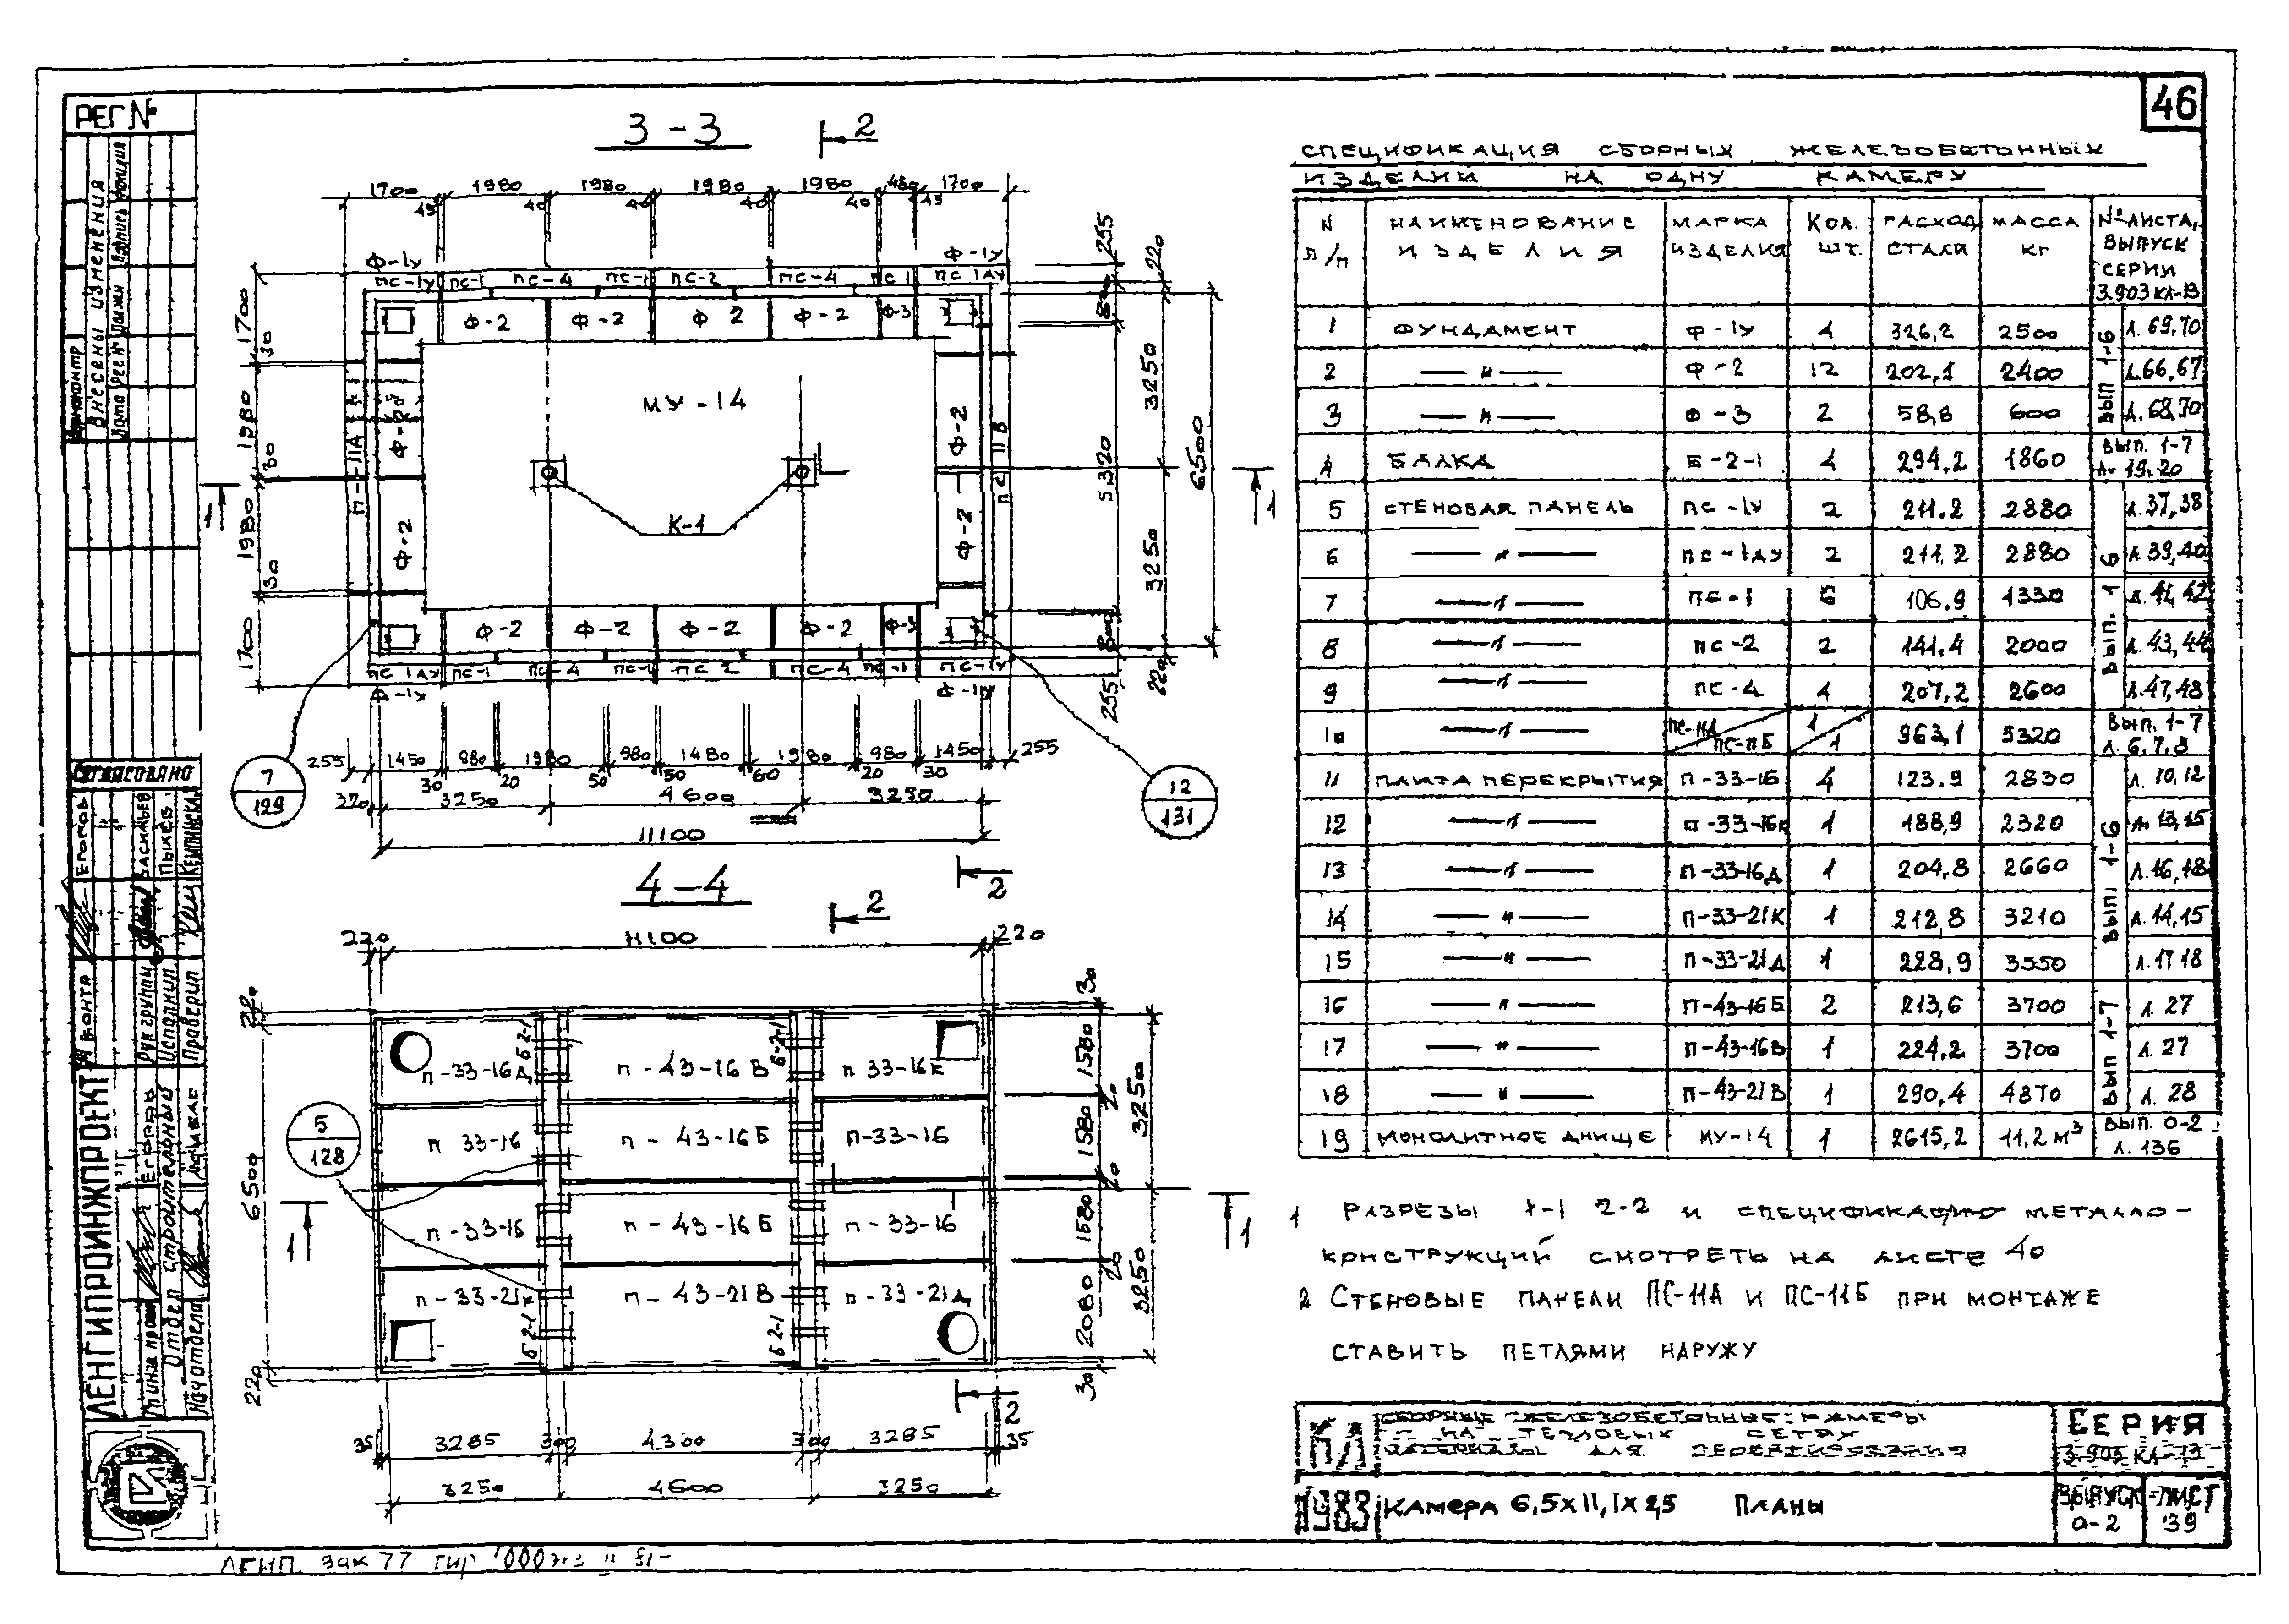 46
РЕГ №
3-3
2
1700 1980 1980 1980 1980 480 1700
45 40 40 40 40 45
Ф-1У Ф-1У
ПС-1У ПС-1 ПС-4 ПС-1 ПС-2 ПС-4 ПС 1 ПС 1ДУ
Ф-2 Ф-2 Ф 2 Ф-2 Ф-3
МУ-14
К-1
Ф-2 Ф-2 Ф-2 Ф-2
ПС 11В
Ф-2 Ф-2 Ф-2 Ф-2 Ф-3
ПС 1ДУ ПС-1 ПС-4 ПС-1 ПС 2 ПС-4 ПС-1 ПС-1У
Ф-1У Ф-1У
1700 30 1980 30 1980 30 1700
255 220 800 3250 5320 6500 3250 800 255 220
1 1
255 1450 980 1980 980 1480 1980 980 1450 255
30 20 50 50 60 20 30
3250 4600 3250
11100
7
129
12
131
2
4-4
2
220 11100 220
П-33-16Д П-43-16 В П 33-16К
П 33-16 П-43-16Б П-33-16
П-33-16 П-43-16Б П-33-16
П-33-21К П-43-21В П-33-21Д
Б 2-1 Б-2-1
Б 2-1 Б 2-1
5
128
6500
220
30 1580 20 1580 20 1580 20 2080 30
3250 3250
1 1
2
35 3285 300 4300 300 3285 35
3250 4600 3250
СПЕЦИФИКАЦИЯ СБОРНЫХ ЖЕЛЕЗОБЕТОННЫХ
ИЗДЕЛИЙ НА ОДНУ КАМЕРУ
N П/П НАИМЕНОВАНИЕ ИЗДЕЛИЯ МАРКА ИЗДЕЛИЯ КОЛ. ШТ. РАСХОД СТАЛИ МАССА КГ № ЛИСТА, ВЫПУСК СЕРИИ 3.903 КЛ-13
1 ФУНДАМЕНТ Ф-1У 4 326,2 2500 Л. 69,70
2 —"— Ф-2 12 202,1 2400 Л.66,67
3 —"— Ф-3 2 58,8 600 Л.68,70
ВЫП 1-6
4 БАЛКА Б-2-1 4 294,2 1860 ВЫП. 1-7 Л. 19,20
5 СТЕНОВАЯ ПАНЕЛЬ ПС-1У 2 211.2 2880 Л.37,38
6 —"— ПС-1ДУ 2 211,2 2880 Л.39,40
7 —"— ПС-1 106,9 1330 Л.41,42
8 —"— ПС-2 2 141,4 2000 Л.43,44
9 —"— ПС-4 4 207,2 2600 Л.47,48
ВЫП. 1 6
10 —"— ПС-11А ПС-11Б 1 1 963,1 5320 ВЫП. 1-7 Л. 6,7,8
11 ПЛИТА ПЕРЕКРЫТИЯ П-33-16 4 123.9 2830 Л. 10,12
12 —"— П-33-16К 1 188,9 2320 Л. 13,15
13 —"— П-33-16Д 1 204,8 2660 Л.16,18
14 —"— П-33-21К 1 212,8 3210 Л.14,15
15 —"— П-33-21Д 1 228,9 3550 Л.17 18
ВЫП 1-6
16 —"— П-43-16Б 2 213,6 3700 Л. 27
17 —"— П-43-16В 1 224.2 3700 Л. 27
18 —"— П-43-21В 1 290,4 4870 Л. 28
ВЫП 1-7
19 МОНОЛИТНОЕ ДНИЩЕ МУ-14 1 2615,2 11,2 м³ ВЫП. 0-2 Л. 136
1 РАЗРЕЗЫ 1-1 2-2 И СПЕЦИФИКАЦИЮ МЕТАЛЛО-
КОНСТРУКЦИЙ СМОТРЕТЬ НА ЛИСТЕ 40
2 СТЕНОВЫЕ ПАНЕЛИ ПС-11А И ПС-11Б ПРИ МОНТАЖЕ
СТАВИТЬ ПЕТЛЯМИ НАРУЖУ
КЛ
1983
СБОРНЫЕ ЖЕЛЕЗОБЕТОННЫЕ КАМЕРЫ
НА ТЕПЛОВЫХ СЕТЯХ
МАТЕРИАЛЫ ДЛЯ ПРОЕКТИРОВАНИЯ
КАМЕРА 6,5х11,1х2,5 ПЛАНЫ
СЕРИЯ
3.903 КЛ-13
ВЫПУСК 0-2
ЛИСТ 39
Внесены изменения
Согласовано
ЛЕНГИПРОИНЖПРОЕКТ
Отдел строительный
Рук группы Васильев
Исполнил Пыхев
Проверил
ЛЕНП. ЗАК 77